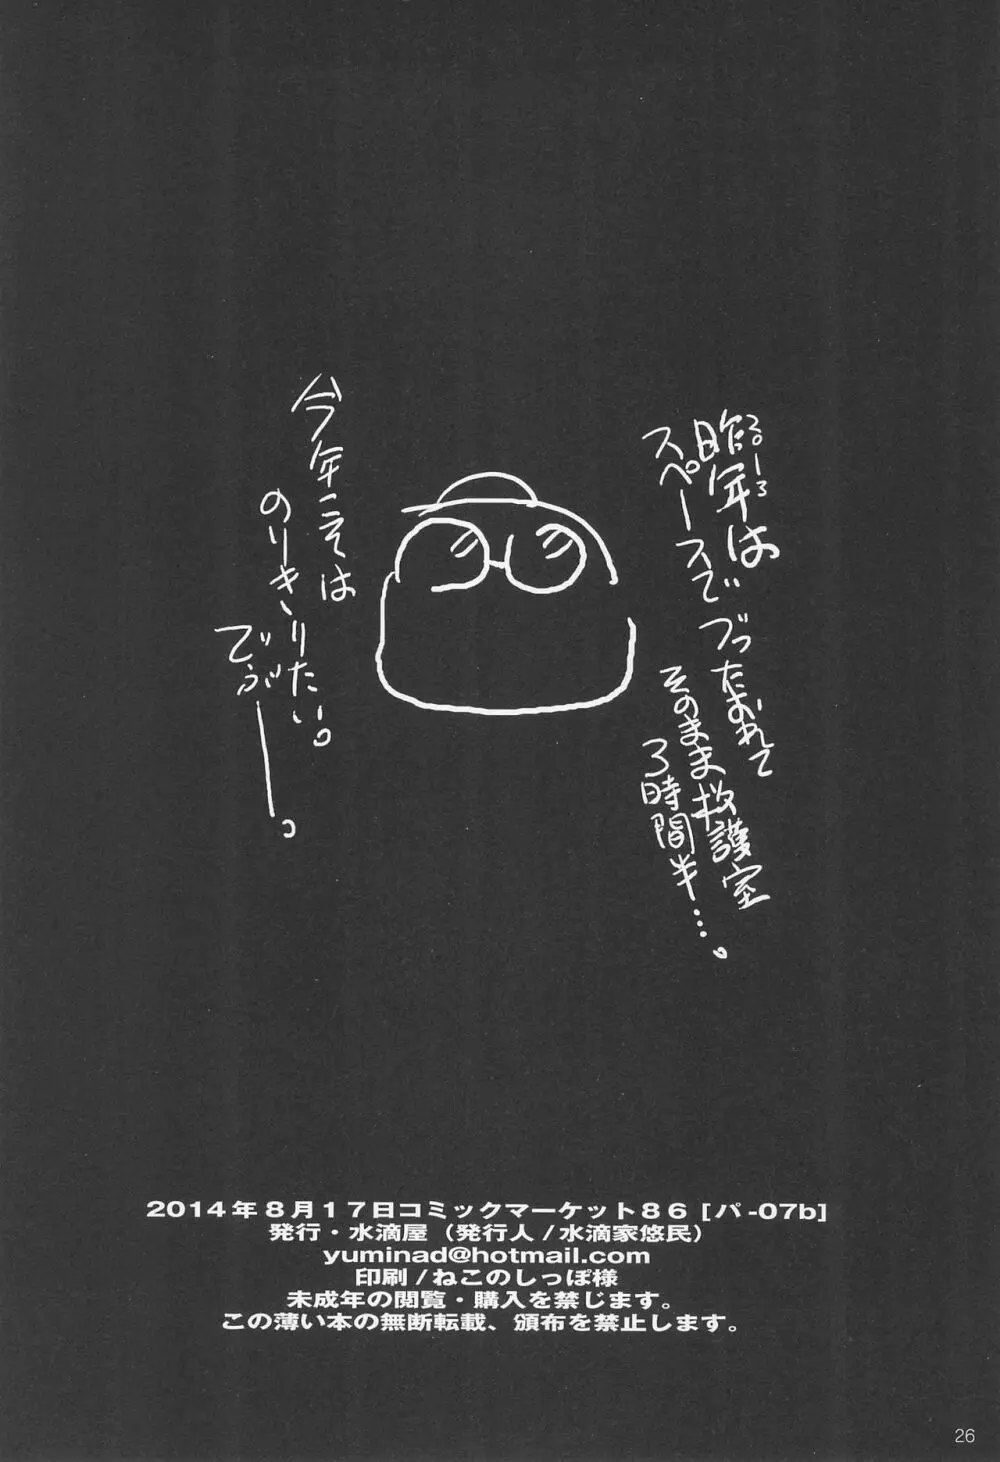 昨年は
2013
スペースで
ぶったおれて
そのまま救護室
3時間半…。
今年こそは
のりきりたい。
でぶー。
2014年8月17日コミックマーケット86 [パ-07b]
発行・水滴屋（発行人/水滴家悠民）
yuminad@hotmail.com
印刷/ねこのしっぽ様
未成年の閲覧・購入を禁じます。
この薄い本の無断転載、頒布を禁止します。
26